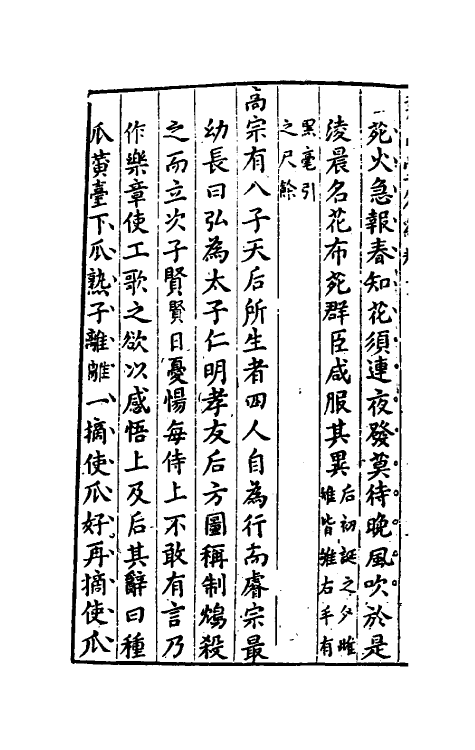 苑火急報春知花須連夜發莫待曉風吹於是
淩晨名花布苑群臣咸服其異后初誕之夕雌
雉皆雊右手有
黑毫引
之尺餘
高宗有八子天后所生者四人自為行而睿宗最
幼長曰弘為太子仁明孝友后方圖稱制鴆殺
之而立次子賢賢日憂惕每侍上不敢有言乃
作樂章使工歌之欲以感悟上及后其辭曰種
瓜黃臺下瓜熟子離離一摘使瓜好再摘使瓜